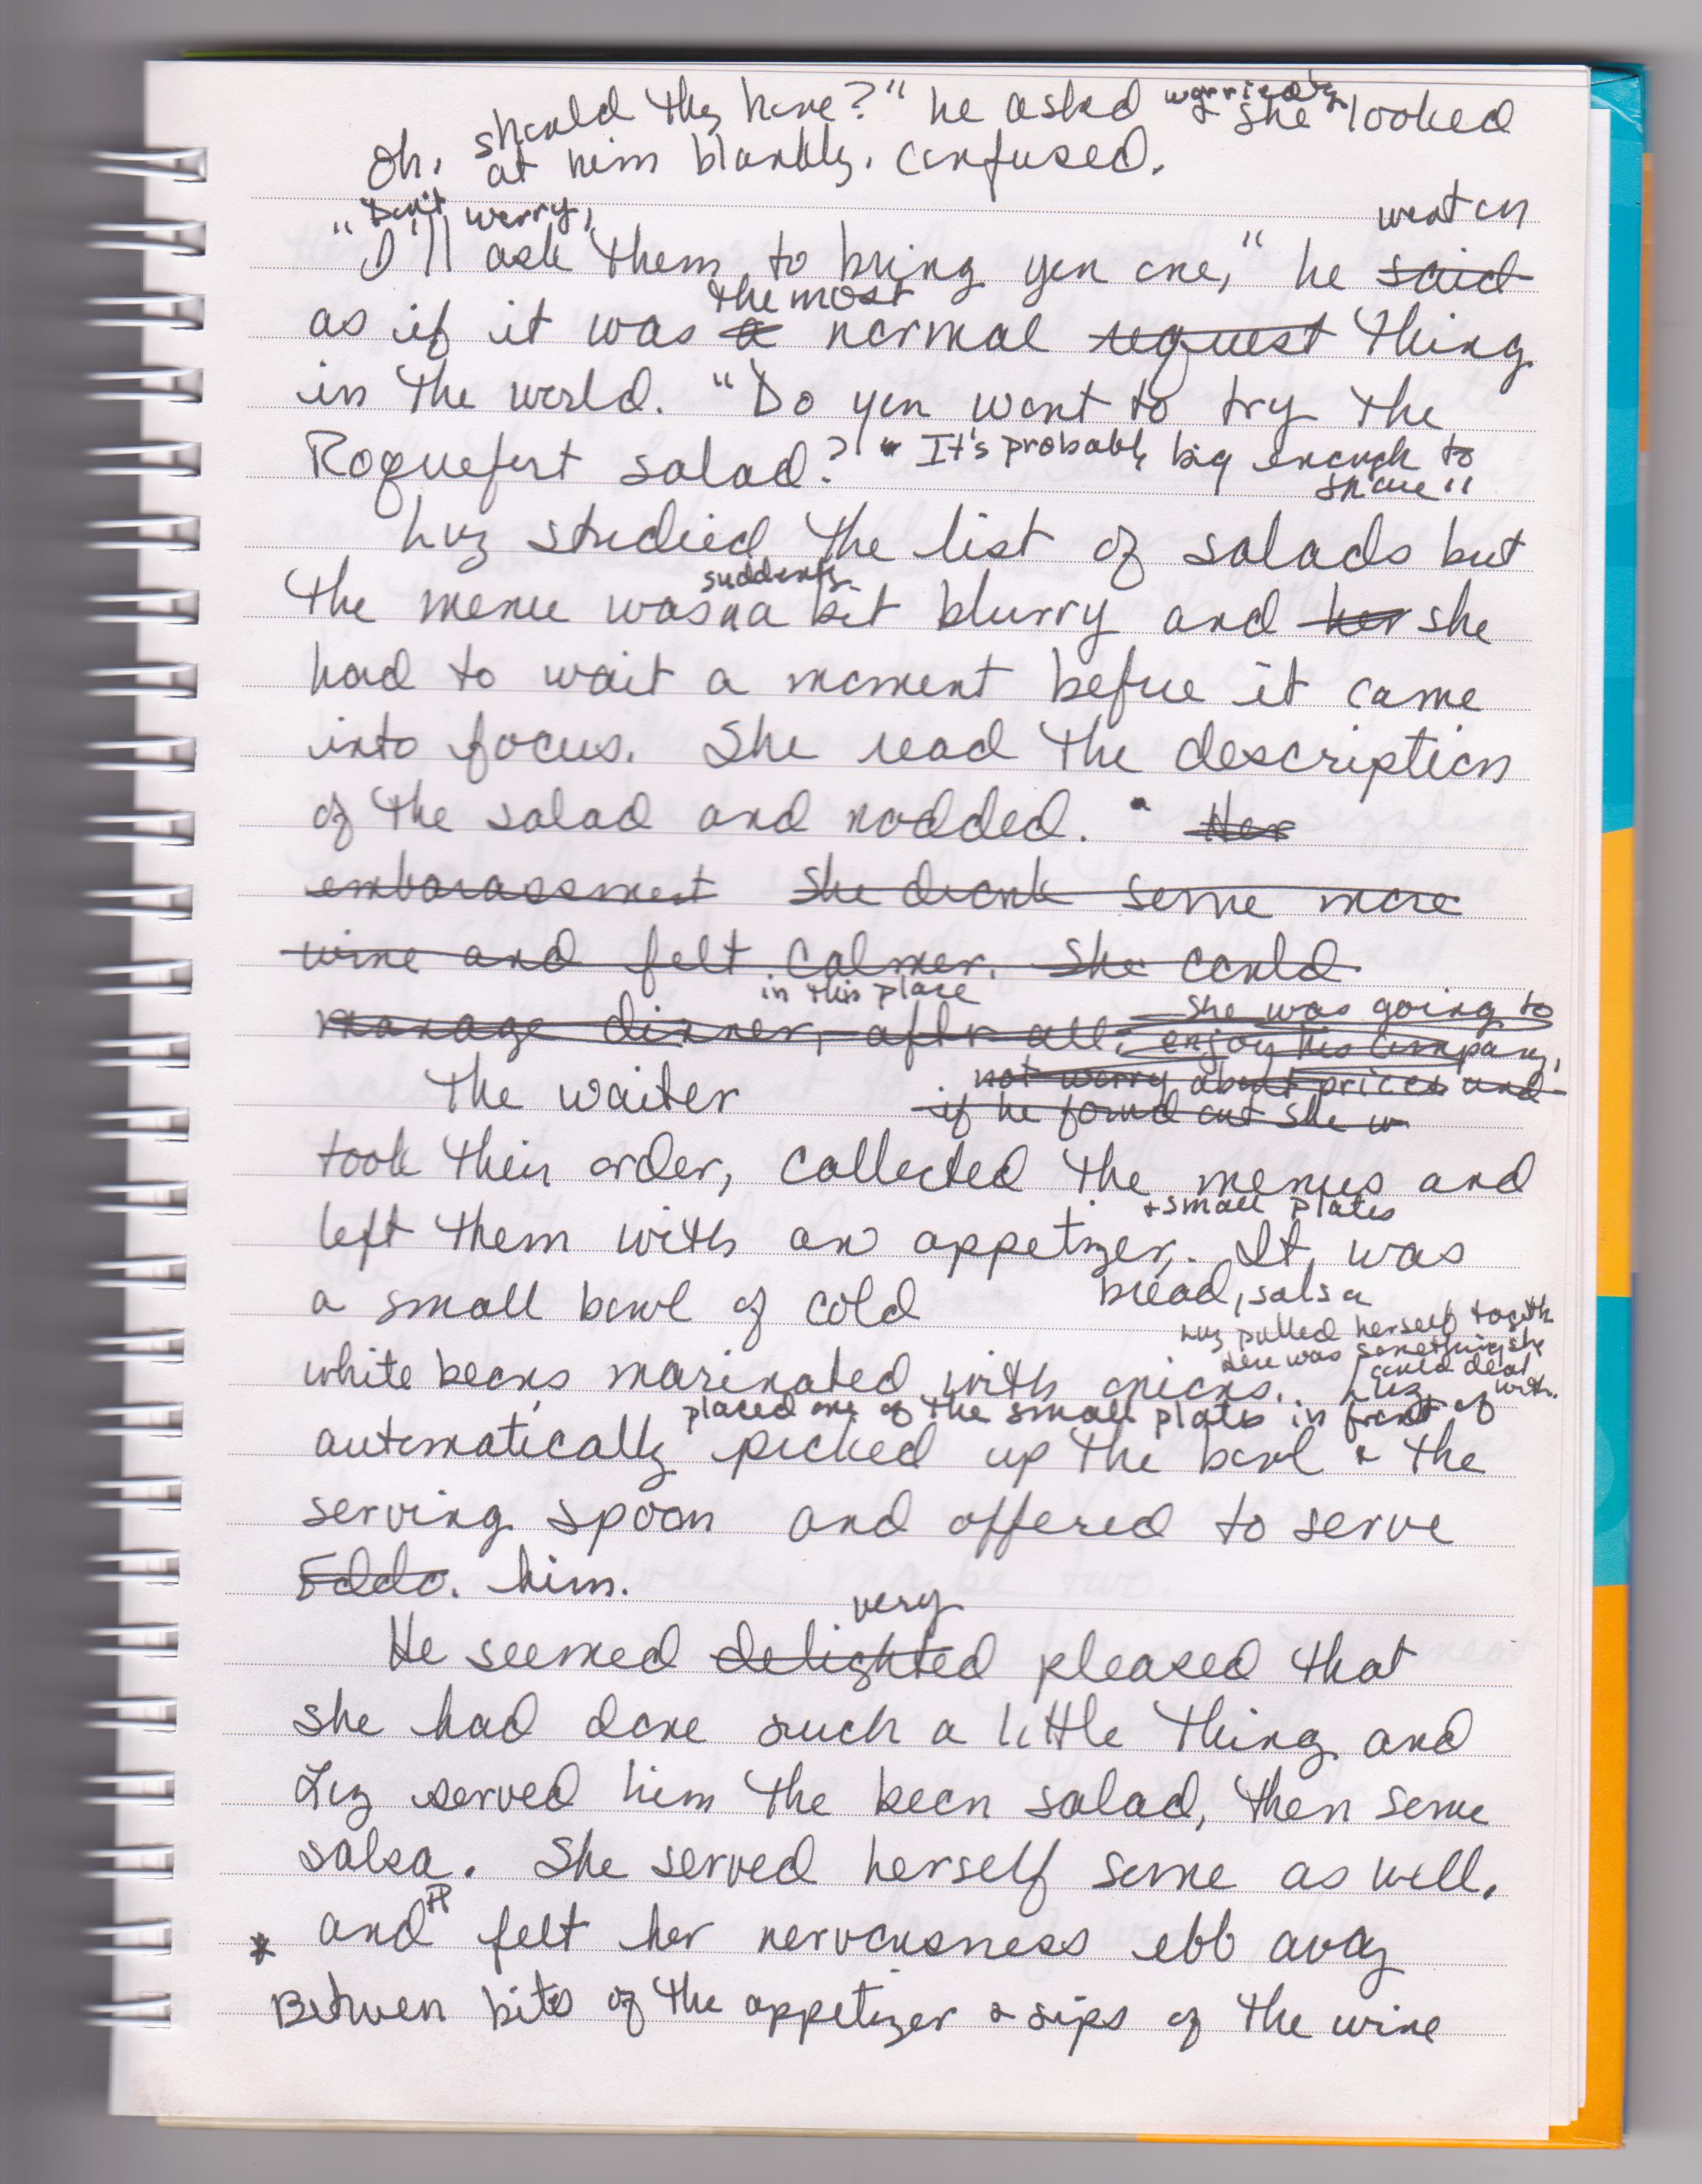 should they have?" he asked worriedly & she looked
Oh. at him blankly. confused.
"Don't worry, went on
I'll ask them to bring you one," he said
the most
as if it was a normal request thing
in the world. "Do you want to try the
Roquefort salad? " It's probably big enough to
share"
Luz studied the list of salads but
suddenly
the menu was a bit blurry and her she
had to wait a moment before it came
into focus. She read the description
of the salad and nodded. " Her
embarassment She drank some more
wine and felt calmer. She could
in this place
manage dinner, after all. She was going to
enjoy his company,
The waiter not worry about prices and
if he found out she w
took their order, collected the menus and
+ small plates
left them with an appetizer. It was
a small bowl of cold bread, salsa
Luz pulled herself togeth
Here was something she
could deal
white beans marinated with onions. Luz with.
placed one of the small plates in front of
automatically picked up the bowl & the
serving spoon and offered to serve
Eddo. him.
very
He seemed delighted pleased that
she had done such a little thing and
Luz served him the bean salad, then some
salsa. She served herself some as well.
* and felt her nervousness ebb away
Between bites of the appetizer & sips of the wine